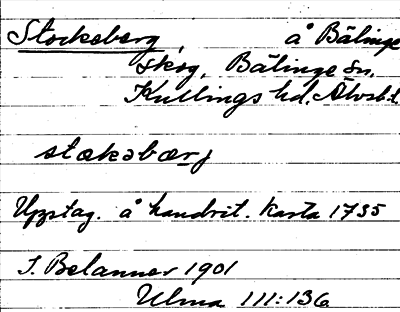 Stockaberg, å Bälinge
skog, Bälinge sn.
Kullings hd. Älvsb.l.
stakabærj
Upptag. å handrit. karta 1735
J. Belanner 1901
Ulma 111:136